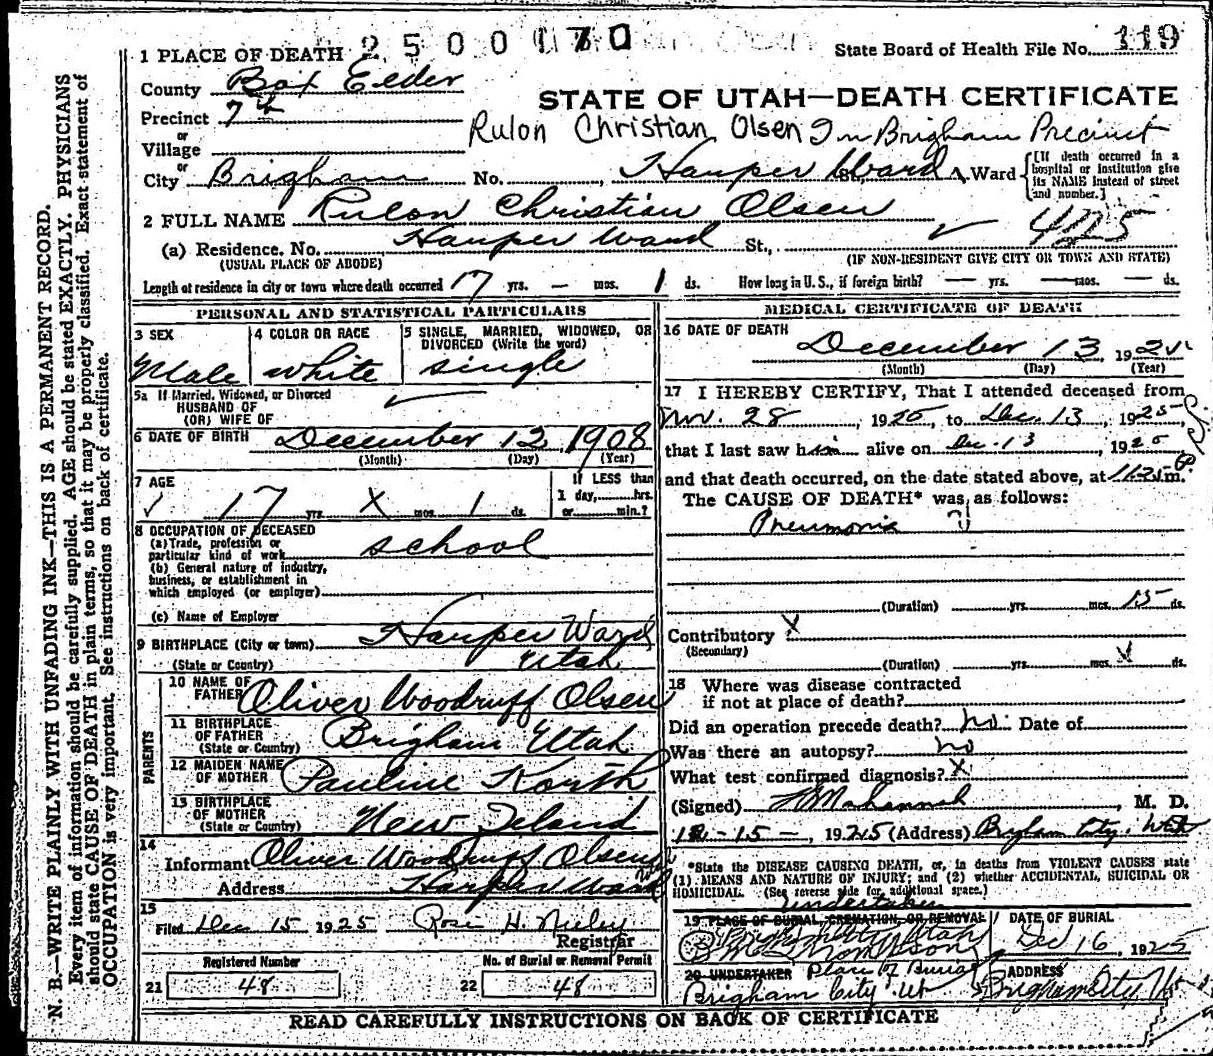 1 PLACE OF DEATH 2500170
State Board of Health File No. 119
County Box Elder
STATE OF UTAH—DEATH CERTIFICATE
Precinct 7th
Rulon Christian Olsen In Brigham Precinct
or
Village
or
City Brigham No. Harper Ward St., Ward
[If death occurred in a
hospital or institution give
its NAME instead of street
and number.]
2 FULL NAME Rulon Christian Olsen
425
(a) Residence. No. Harper Ward St.,
(USUAL PLACE OF ABODE)
(IF NON-RESIDENT GIVE CITY OR TOWN AND STATE)
Length of residence in city or town where death occurred 17 yrs. — mos. 1 ds. How long in U. S., if foreign birth? — yrs. — mos. — ds.
PERSONAL AND STATISTICAL PARTICULARS
3 SEX
Male
4 COLOR OR RACE
white
5 SINGLE, MARRIED, WIDOWED, OR
DIVORCED (Write the word)
single
5a If Married, Widowed, or Divorced
HUSBAND OF
(OR) WIFE OF
6 DATE OF BIRTH December 12, 1908
(Month) (Day) (Year)
7 AGE
17 yrs. X mos. 1 ds.
If LESS than
1 day, hrs.
or min.?
8 OCCUPATION OF DECEASED
(a) Trade, profession or
particular kind of work school
(b) General nature of industry,
business, or establishment in
which employed (or employer)
(c) Name of Employer
9 BIRTHPLACE (City or town) Harper Ward
(State or Country) Utah
PARENTS
10 NAME OF
FATHER Oliver Woodruff Olsen
11 BIRTHPLACE
OF FATHER
(State or Country) Brigham Utah
12 MAIDEN NAME
OF MOTHER Pauline North
13 BIRTHPLACE
OF MOTHER
(State or Country) New Zeland
14
Informant Oliver Woodruff Olsen
Address Harper Ward
15
Filed Dec 15 1925
Registrar
Registered Number
21 48
No. of Burial or Removal Permit
22 48
MEDICAL CERTIFICATE OF DEATH
16 DATE OF DEATH
December 13, 1925
(Month) (Day) (Year)
17 I HEREBY CERTIFY, That I attended deceased from
Nov. 28 1925, to Dec. 13, 1925
that I last saw him alive on Dec. 13, 1925
and that death occurred, on the date stated above, at 11:25 P. m.
The CAUSE OF DEATH* was as follows:
Pneumonia
(Duration) yrs. mos. 15 ds.
Contributory X
(Secondary)
(Duration) yrs. mos. X ds.
18 Where was disease contracted
if not at place of death?
Did an operation precede death? no. Date of
Was there an autopsy? no
What test confirmed diagnosis? X
(Signed) M. D.
12-15-, 1925 (Address) Brigham City, Utah
*State the DISEASE CAUSING DEATH, or, in deaths from VIOLENT CAUSES state
(1) MEANS AND NATURE OF INJURY; and (2) whether ACCIDENTAL, SUICIDAL OR
HOMICIDAL. (See reverse side for additional space.)
Undertaker
19 PLACE OF BURIAL, CREMATION, OR REMOVAL
DATE OF BURIAL
Dec 16, 1925
20 UNDERTAKER Place of Burial
Brigham City Ut
ADDRESS
Brigham City, Ut
READ CAREFULLY INSTRUCTIONS ON BACK OF CERTIFICATE
N. B.—WRITE PLAINLY WITH UNFADING INK—THIS IS A PERMANENT RECORD.
Every item of information should be carefully supplied. AGE should be stated EXACTLY. PHYSICIANS
should state CAUSE OF DEATH in plain terms, so that it may be properly classified. Exact statement of
OCCUPATION is very important. See instructions on back of certificate.